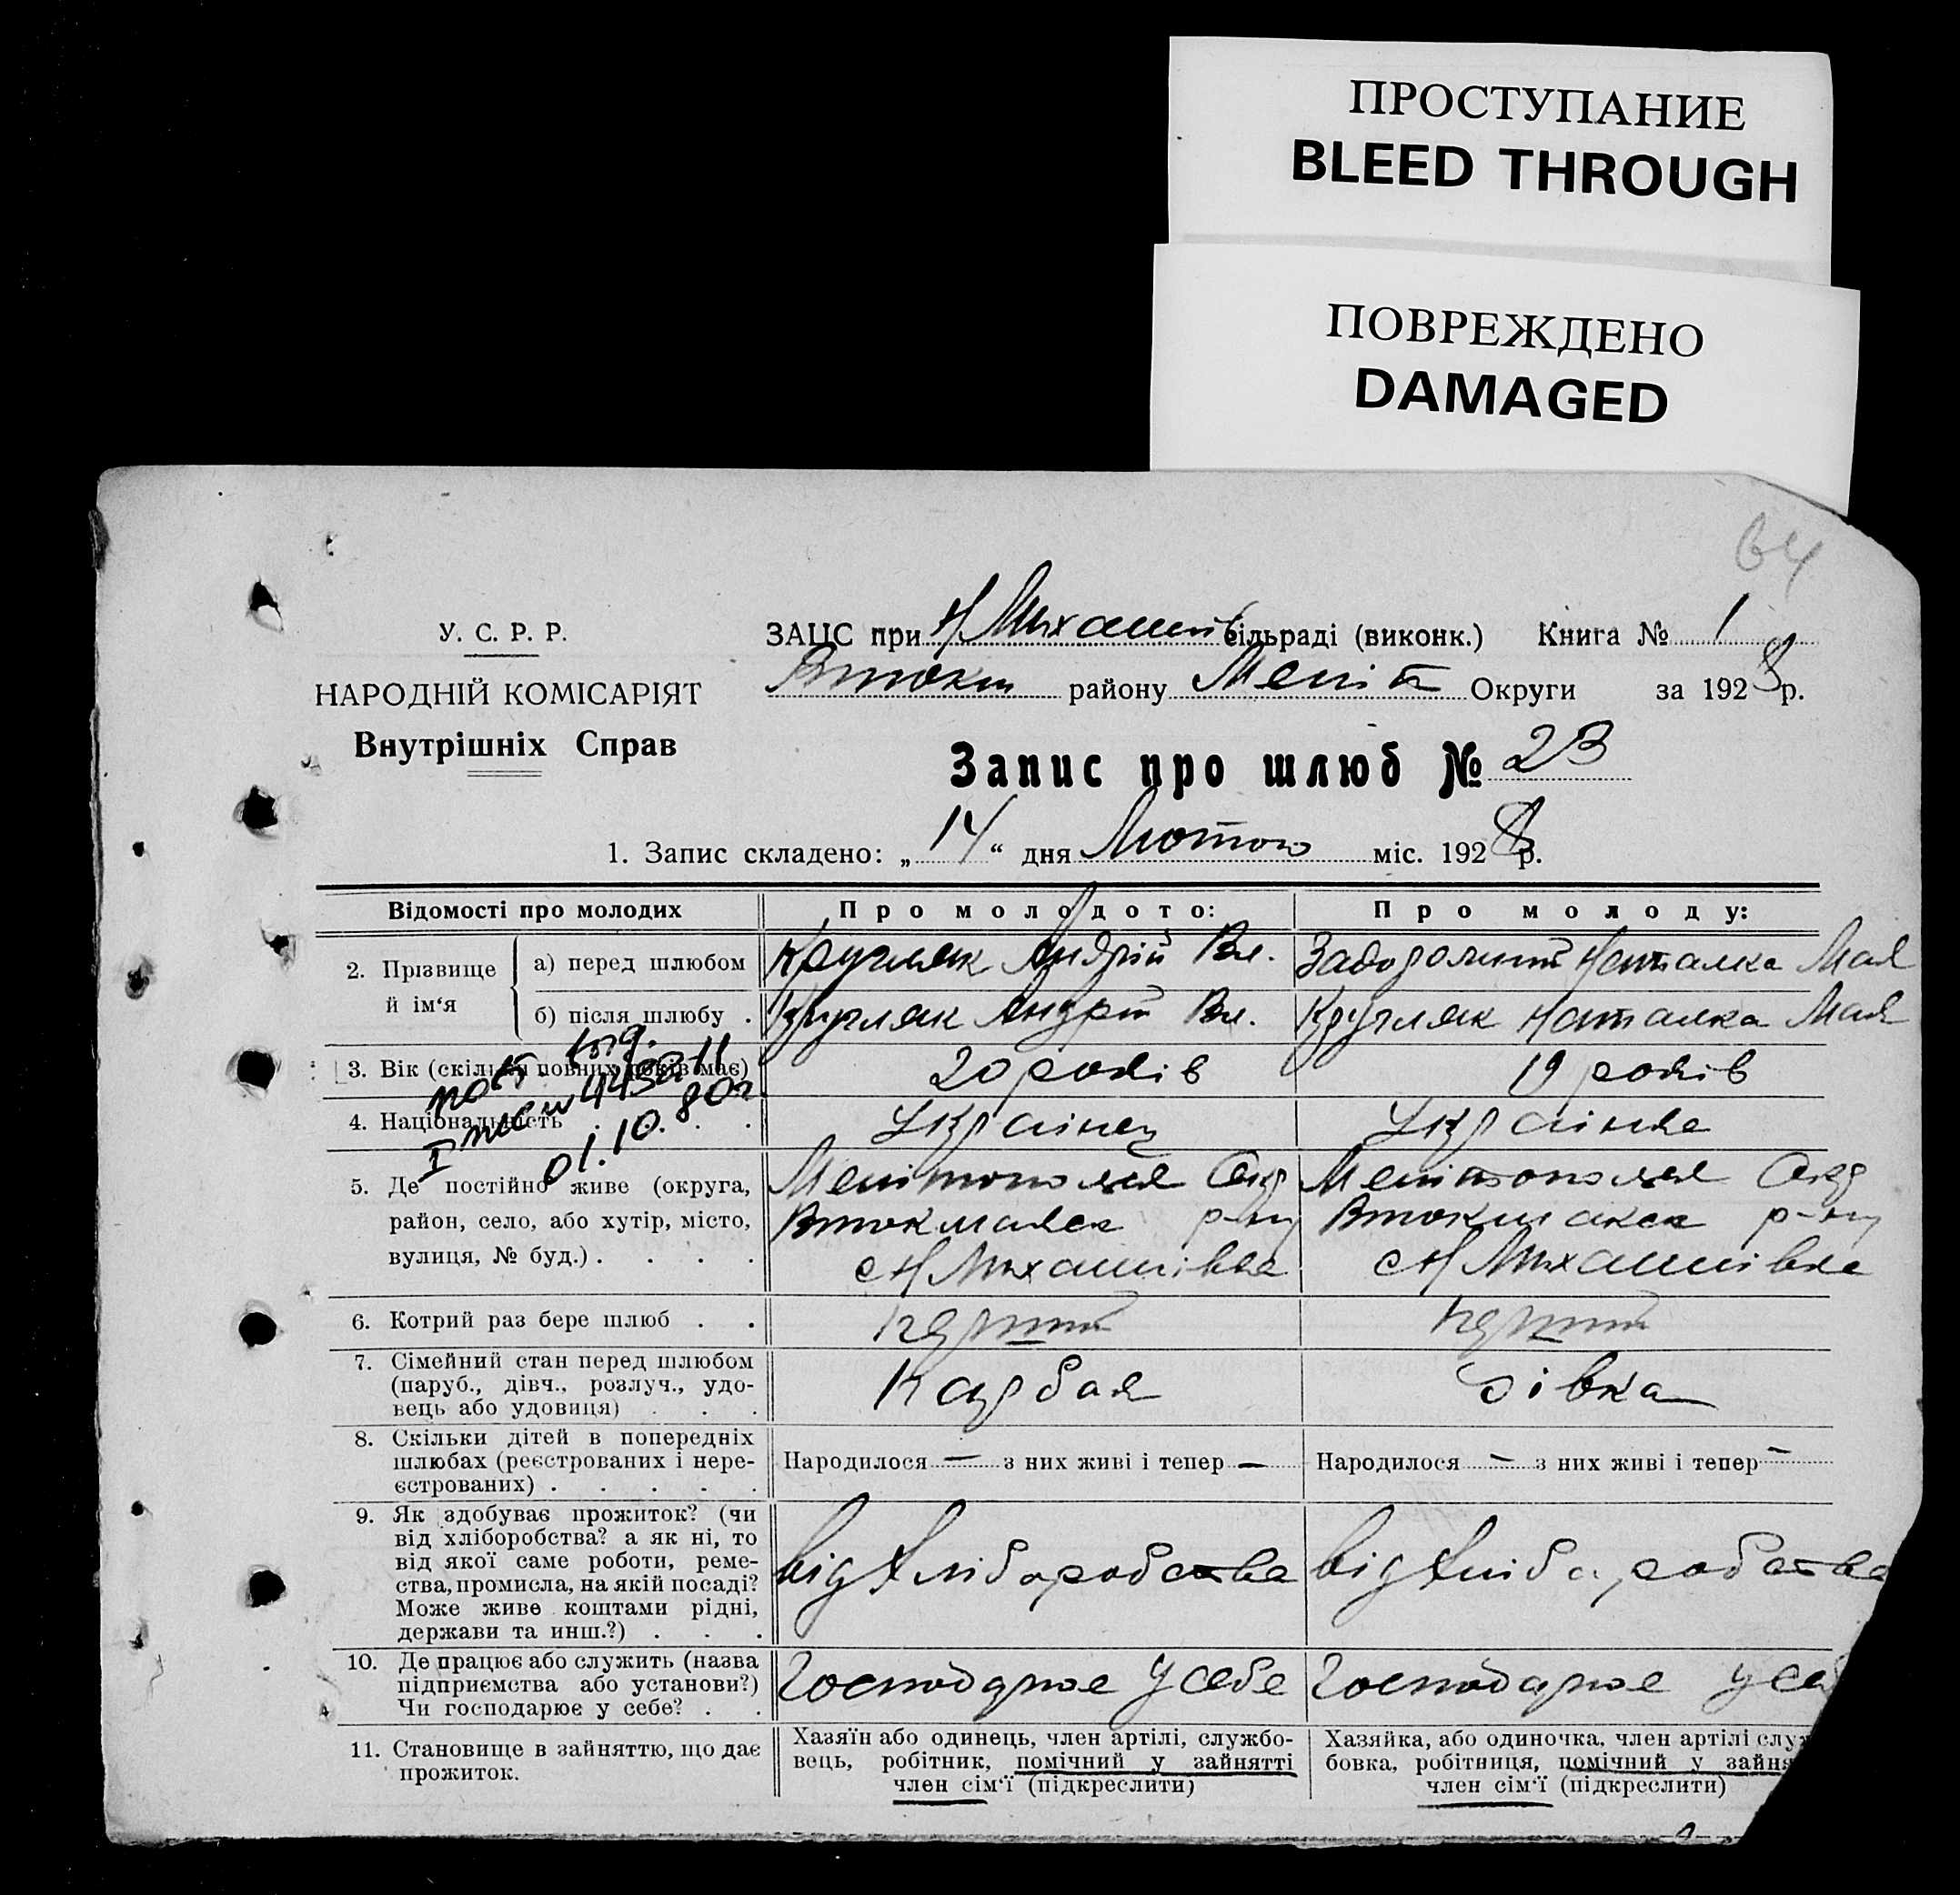 ПРОСТУПАНИЕ
BLEED THROUGH
ПОВРЕЖДЕНО
DAMAGED
64
У. С. Р. Р.
НАРОДНІЙ КОМІСАРІЯТ
Внутрішніх Справ
ЗАЦС при Н Михайлів сільраді (виконк.) Книга № 1
Втокм району Меліт Округи за 1928 р.
Запис про шлюб № 23
1. Запис складено: „14“ дня Лютого міс. 1928 р.
Відомості про молодих Про молодого: Про молоду:
2. Прізвище й ім‘я
а) перед шлюбом Кругляк Андрій Вл. Наталка
б) після шлюбу . Кругляк Андрій Вл. Кругляк Наталка
3. Вік (скільки повних років має) 20 років 19 років
4. Національність . . . . Українец Українка
01.10.80г.
5. Де постійно живе (округа, район, село, або хутір, місто, вулиця, № буд.) . . . .
Мелітопольск Окр
Втокмакск р-ну
с Н Михайлівка
Мелітопольск Окр
Втокмакск р-ну
с Н Михайлівка
6. Котрий раз бере шлюб . . перший перший
7. Сімейний стан перед шлюбом
(паруб., дівч., розлуч., удо-
вець або удовиця) . . . дівка
8. Скільки дітей в попередніх
шлюбах (реєстрованих і нере-
єстрованих) . . . . .
Народилося — з них живі і тепер — Народилося — з них живі і тепер —
9. Як здобуває прожиток? (чи
від хліборобства? а як ні, то
від якої саме роботи, реме-
ства, промисла, на якій посаді?
Може живе коштами рідні,
держави та инш.?) . . .
від Хліборобства від Хліборобства
10. Де працює або служить (назва
підприємства або установи?)
Чи господарює у себе? . .
Господарює у себе Господарює у себ
11. Становище в зайняттю, що дає
прожиток.
Хазяїн або одинець, член артілі, службо-
вець, робітник, помічний у зайнятті
член сім‘ї (підкреслити)
Хазяйка, або одиночка, член артілі служ
бовка, робітниця, помічний у зайня
член сім‘ї (підкреслити)